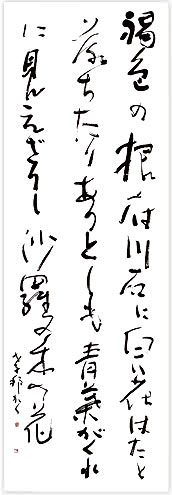 褐色の根府川石に白き花はたと
落ちたりありとしも青葉がくれ
に見えざりし沙羅の木の花